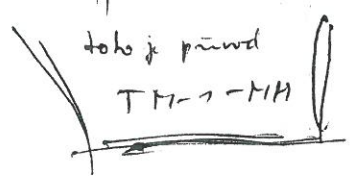 toho je původ
TM-1-MM